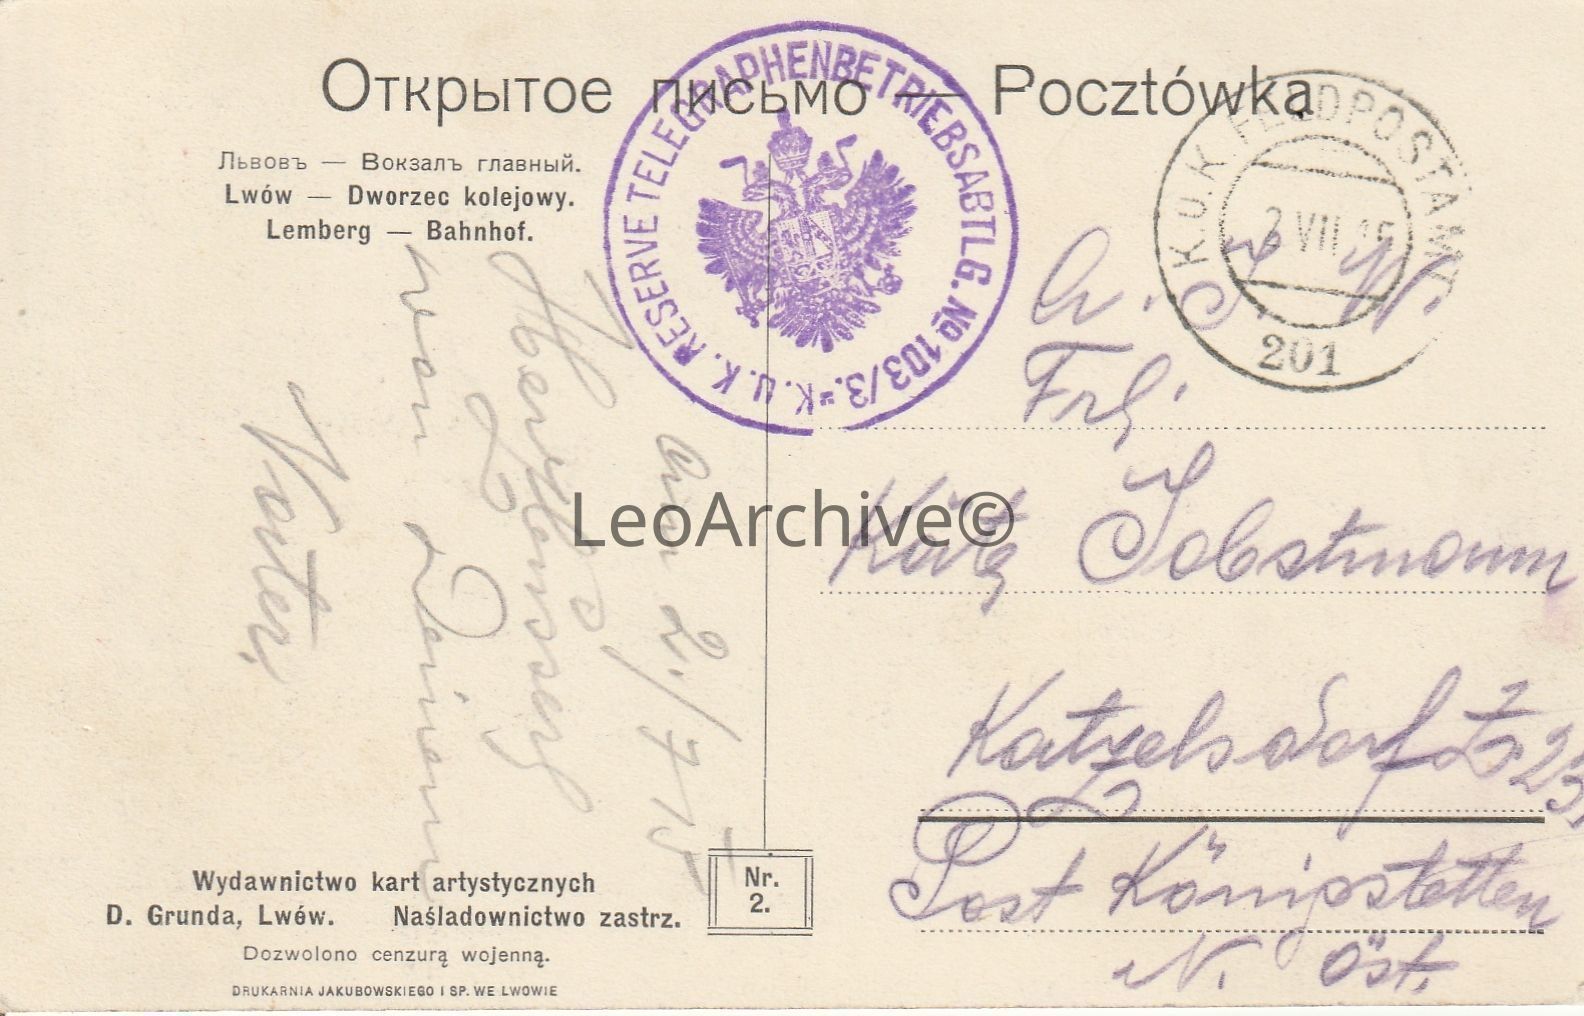 Открытое письмо — Pocztówka
Львовъ — Вокзалъ главный.
Lwów — Dworzec kolejowy.
Lemberg — Bahnhof.
K.U.K. RESERVE TELEGRAPHENBETRIEBSABTLG. No 103/3.
K.u.K. FELDPOSTAMT
2 VII 15
201
Frl.
Käthe Jobstmann
Katzelsdorf
Post Königstetten
N. Öst.
am 2./7 15
Herzlichst
von Deinem
Vater.
LeoArchive©
Wydawnictwo kart artystycznych
D. Grunda, Lwów. Naśladownictwo zastrz.
Dozwolono cenzurą wojenną.
DRUKARNIA JAKUBOWSKIEGO I SP. WE LWOWIE
Nr.
2.